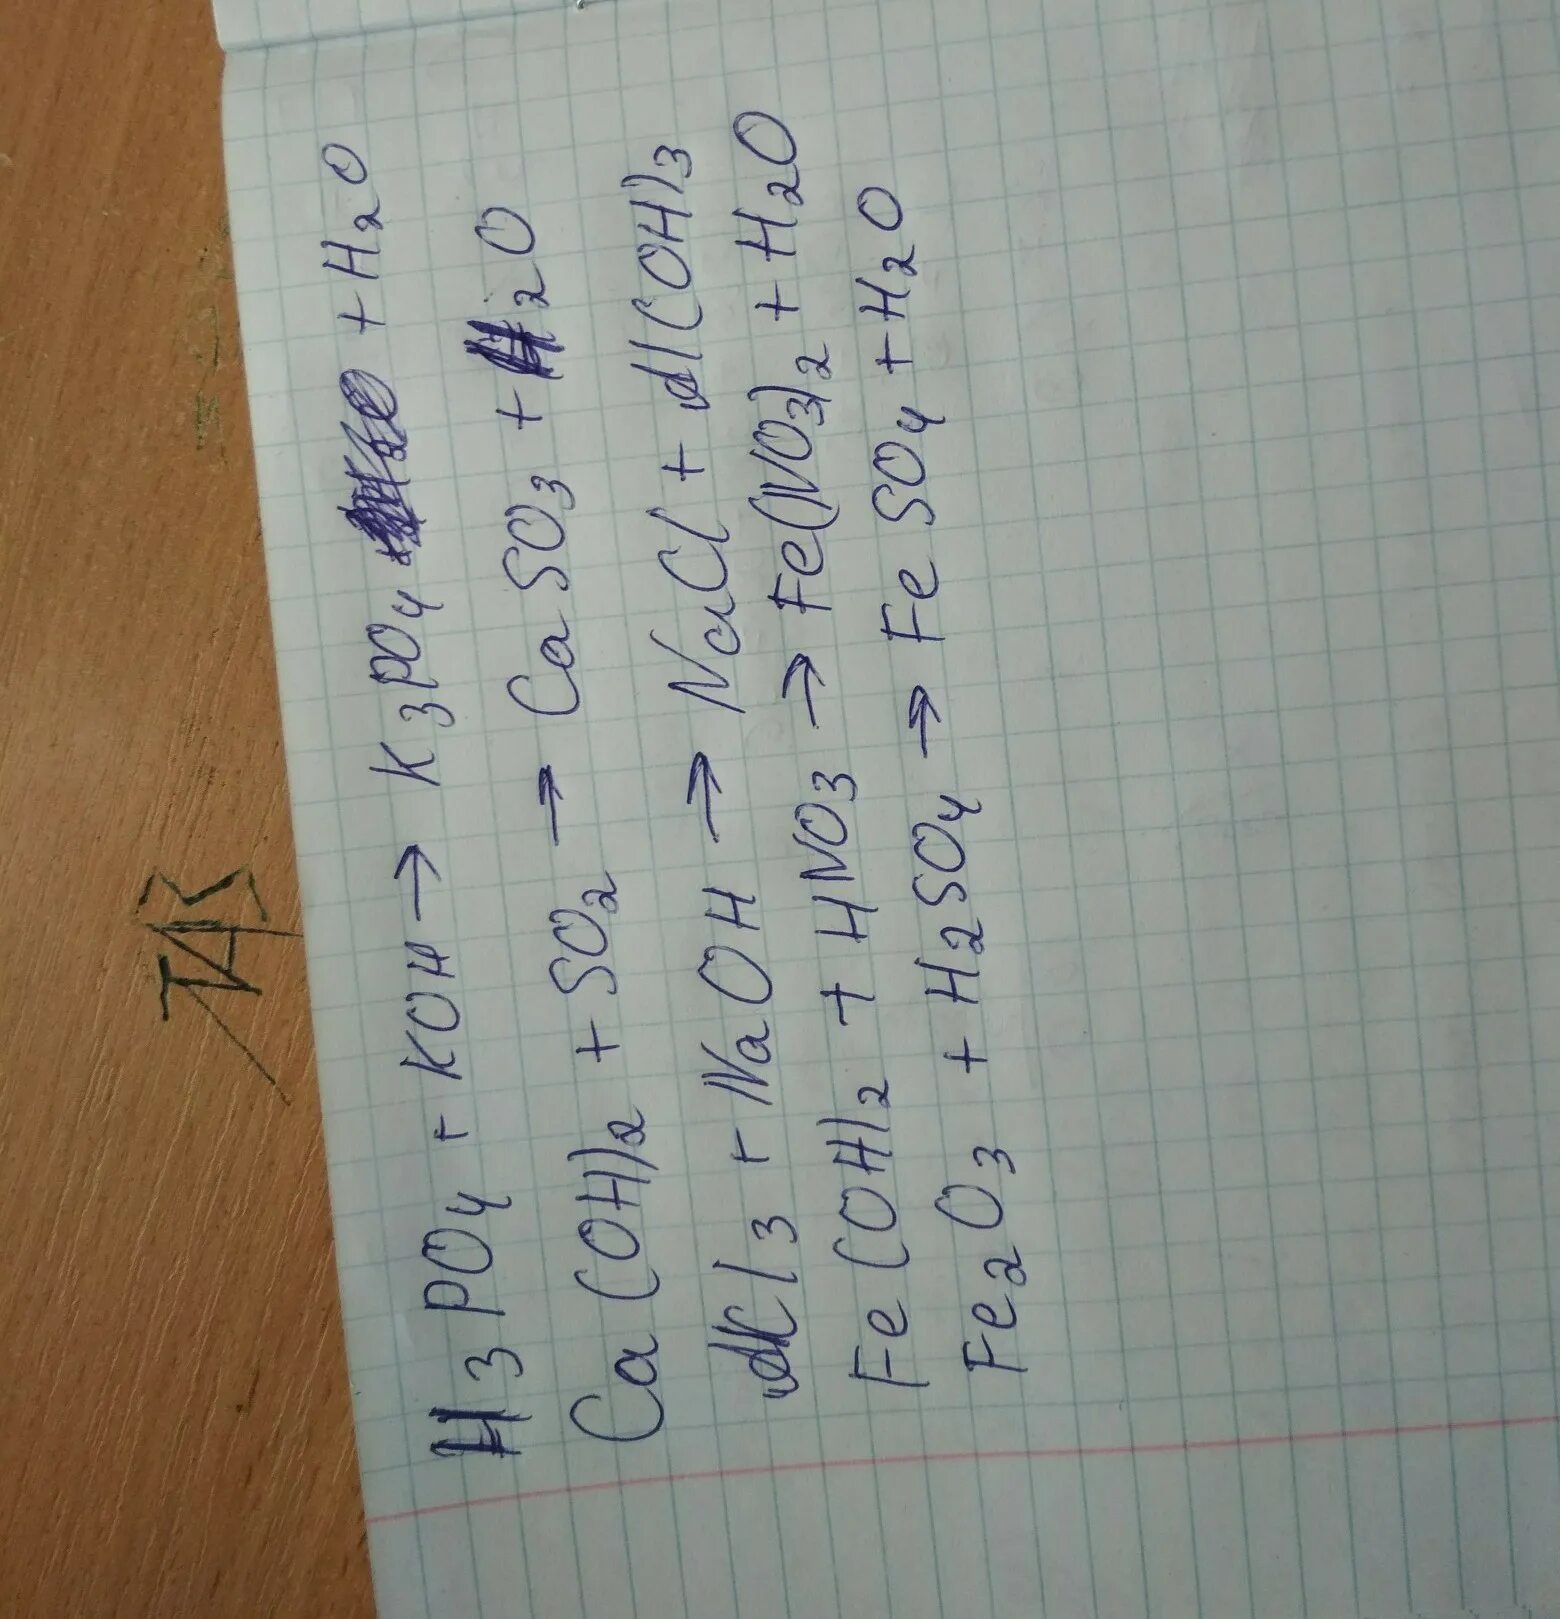 H₃PO₄ + KOH → K₃PO₄ + H₂O
Ca(OH)₂ + SO₂ → CaSO₃ + H₂O
AlCl₃ + NaOH → NaCl + Al(OH)₃
Fe(OH)₂ + HNO₃ → Fe(NO₃)₂ + H₂O
Fe₂O₃ + H₂SO₄ → FeSO₄ + H₂O